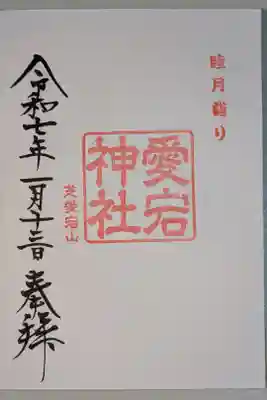 睦月詣り
愛宕
神社
芝愛宕山
令和七年一月十三日奉拝